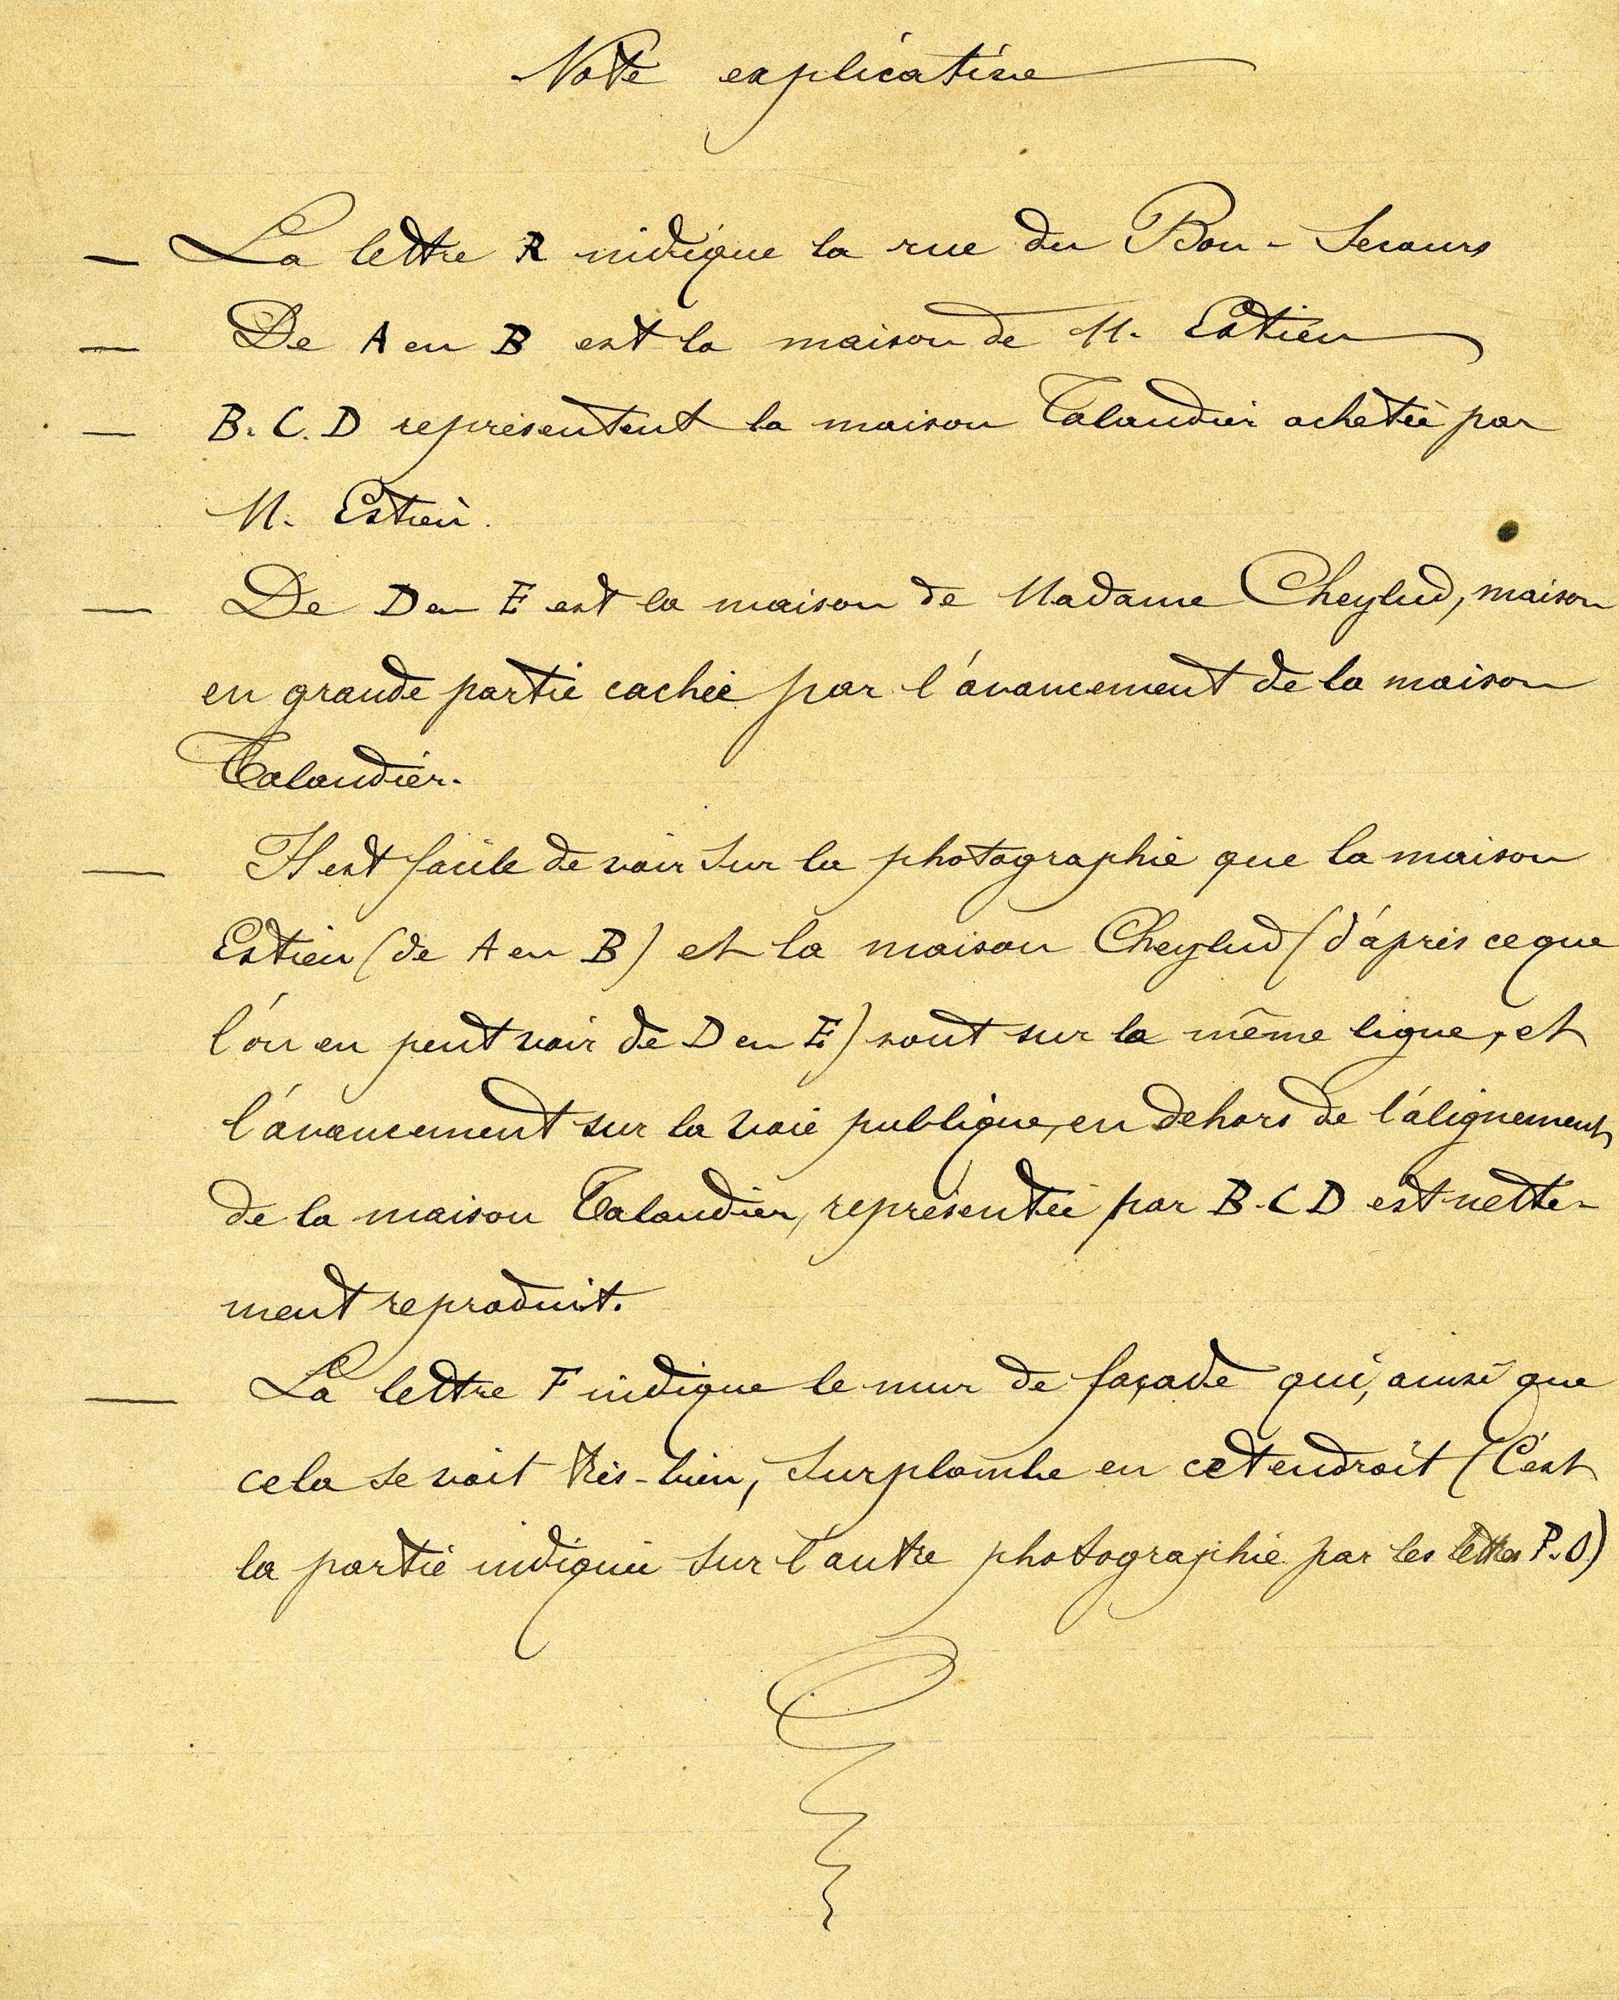 Note explicative
— La lettre R indique la rue du Bon-Secours
— De A en B est la maison de M. Estien
— B. C. D représentent la maison Talandier achetée par
M. Estien.
— De D en E est la maison de Madame Cheylud, maison
en grande partie cachée par l'avancement de la maison
Talandier.
— Il est facile de voir sur la photographie que la maison
Estien (de A en B) et la maison Cheylud (d'après ce que
l'on en peut voir de D en E) sont sur la même ligne, et
l'avancement sur la voie publique, en dehors de l'alignement
de la maison Talandier, représentée par B. C D est nette-
ment reproduit.
— La lettre F indique le mur de façade qui, ainsi que
cela se voit très-bien, surplombe en cet endroit (C'est
la partie indiquée sur l'autre photographie par les lettres P.O)